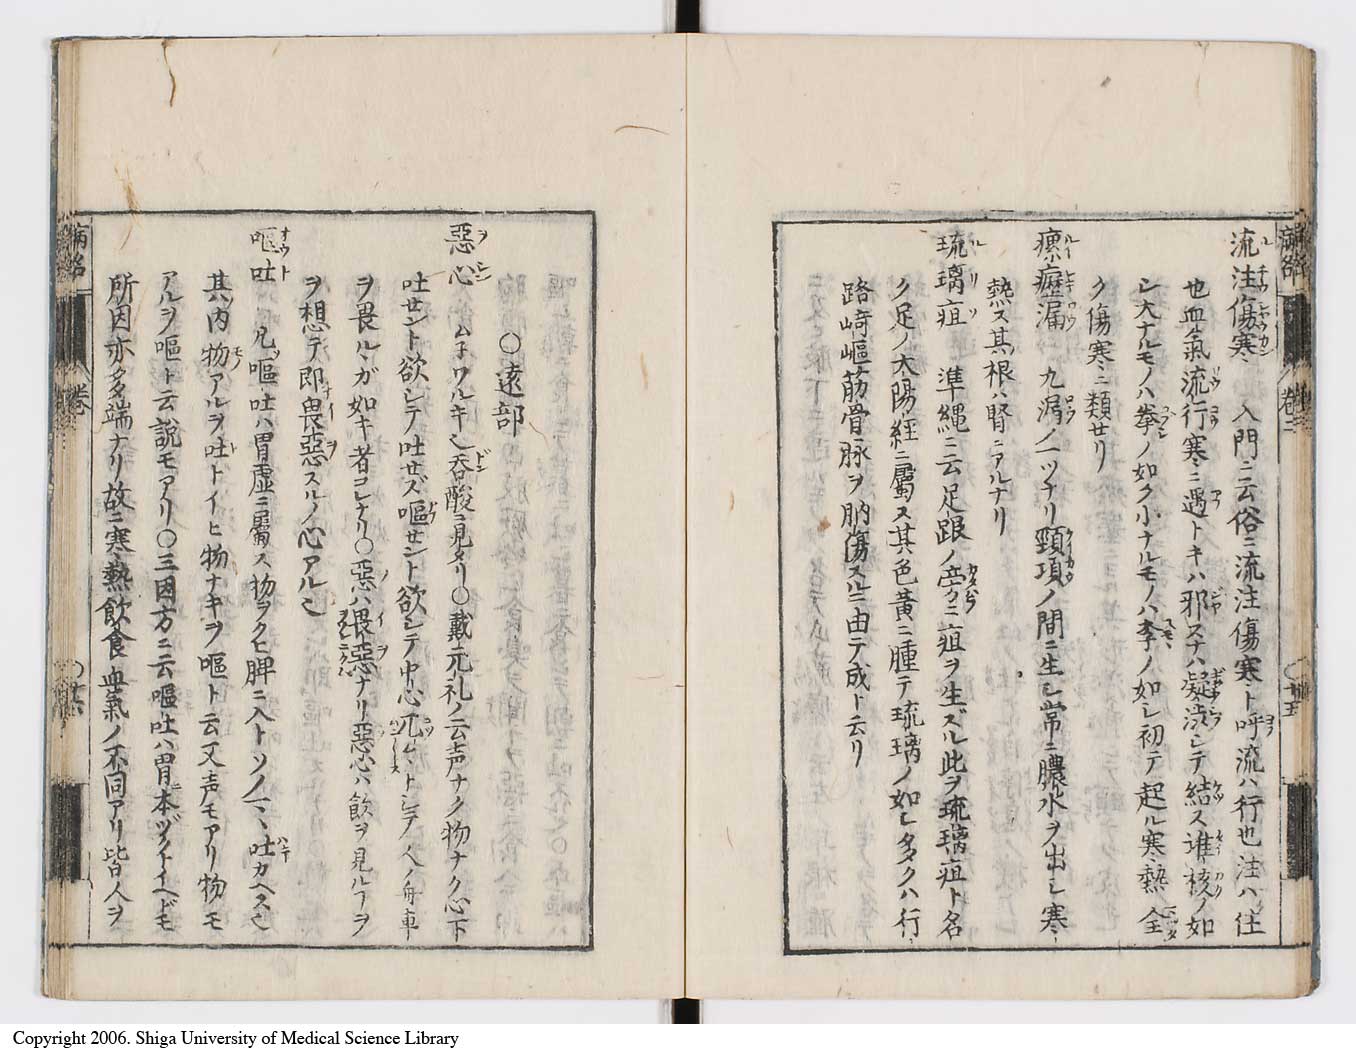 流注傷寒 入門ニ云俗ニ流注傷寒ト呼流ハ行也注ハ住
也血氣流行寒ニ遇トキハ邪スナハ凝渋シテ結ス堆核ノ如
シ大ナルモノハ拳ノ如ク小ナルモノハ李ノ如シ初テ起ル寒熱全
ク傷寒ニ類セリ
瘰癧漏 九漏ノ一ツナリ頸項ノ間ニ生シ常ニ膿水ヲ出シ寒
熱ス其根ハ腎ニアルナリ
琉璃疽 準繩ニ云足跟ノ旁ニ疽ヲ生ズル此ヲ琉璃疽ト名
ク足ノ太陽経ニ屬ス其色黄ニ腫テ琉璃ノ如シ多クハ行
路﨑嶇筋骨脉ヲ肭傷スルニ由テ成ト云リ
病名
卷三
〇廿五
〇遠部
惡心 ムネワルキ也呑酸ニ見タリ〇戴元礼ノ云声ナク物ナク心下
吐セント欲シテ吐セズ嘔セント欲シテ中心兀々トシテ人ノ舟車
ヲ畏ルヽガ如キ者コレナリ〇惡ハ畏惡ナリ惡心ハ飲ヲ見ルヿヲ
ヲ想テ即畏惡スルノ心アル也
嘔吐 凡嘔吐ハ胃虚ニ屬ス物ヲクヒ脾ニ入トソノマヽ吐カヘス也
其内物アルヲ吐トイヒ物ナキヲ嘔ト云又声モアリ物モ
アルヲ嘔ト云説モアリ〇三因方ニ云嘔吐ハ胃ニ本ヅクトイヘドモ
所因亦多端ナリ故ニ寒熱飲食血氣ノ不同アリ皆人ヲ
卷
〇廿六
Copyright 2006. Shiga University of Medical Science Library